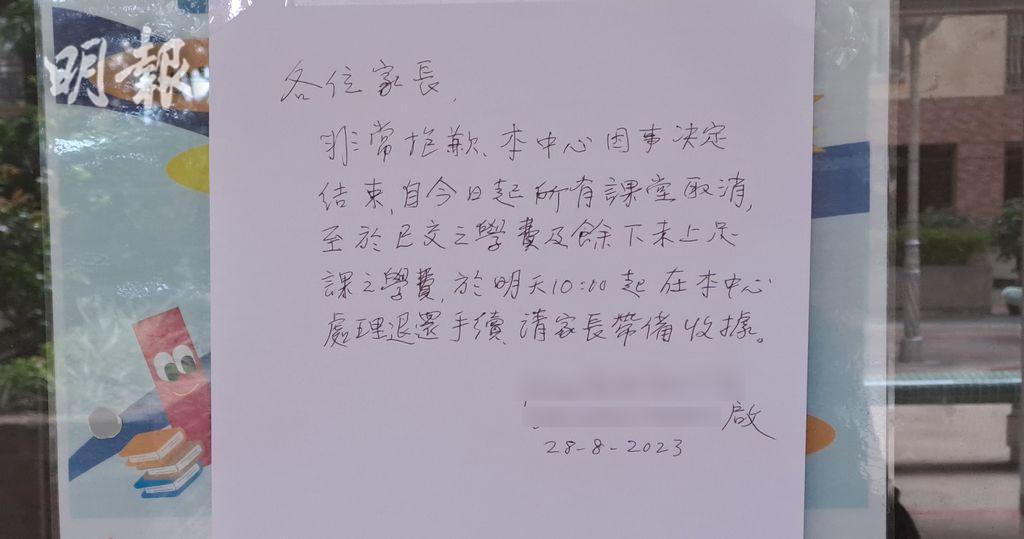 明報
各位家長,
非常抱歉、本中心因事決定
结束,自今日起所有課堂取消,
至於已交之學費及餘下未上足
課之學費,於明天10:00起在本中心
處理退還手續、请家長帶備收據。
啟
28-8-2023